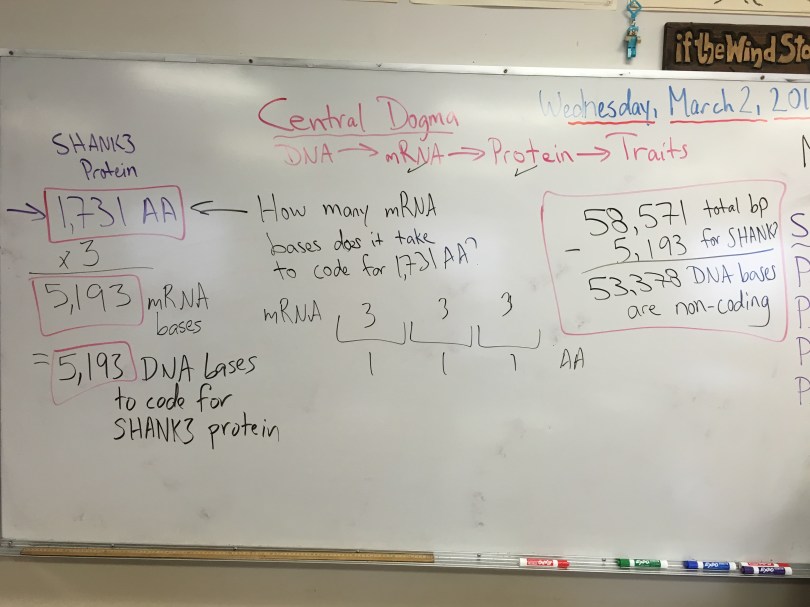 if the Wind Sto
Wednesday, March 2, 201
Central Dogma
DNA → mRNA → Protein → Traits
SHANK3
Protein
→ 1,731 AA ←
x 3
5,193 mRNA
bases
= 5,193 DNA bases
to code for
SHANK3 protein
How many mRNA
bases does it take
to code for 1,731 AA?
mRNA 3 3 3
1 1 1 AA
58,571 total bp
- 5,193 for SHANK3
53,378 DNA bases
are non-coding
S
P
P
P